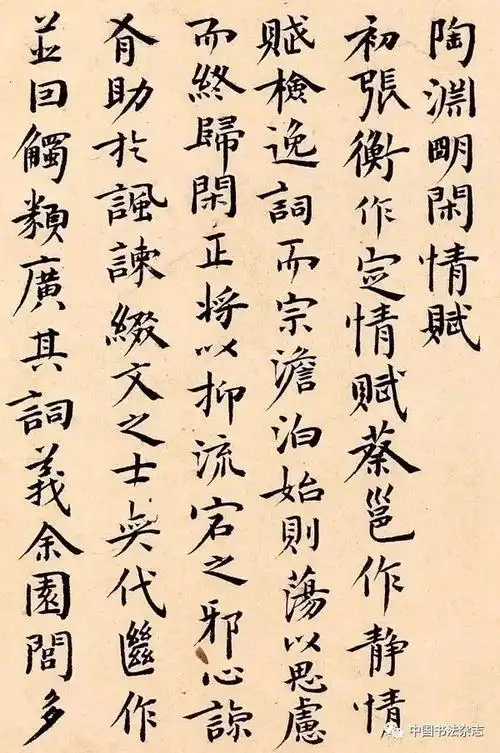 陶淵明閑情賦
初張衡作定情賦蔡邕作静情
賦檢逸詞而宗澹泊始則蕩以思慮
而終歸閑正将以抑流宕之邪心諒
有助於諷諫綴文之士奕代繼作
並因觸類廣其詞義余園閭多
中国书法杂志